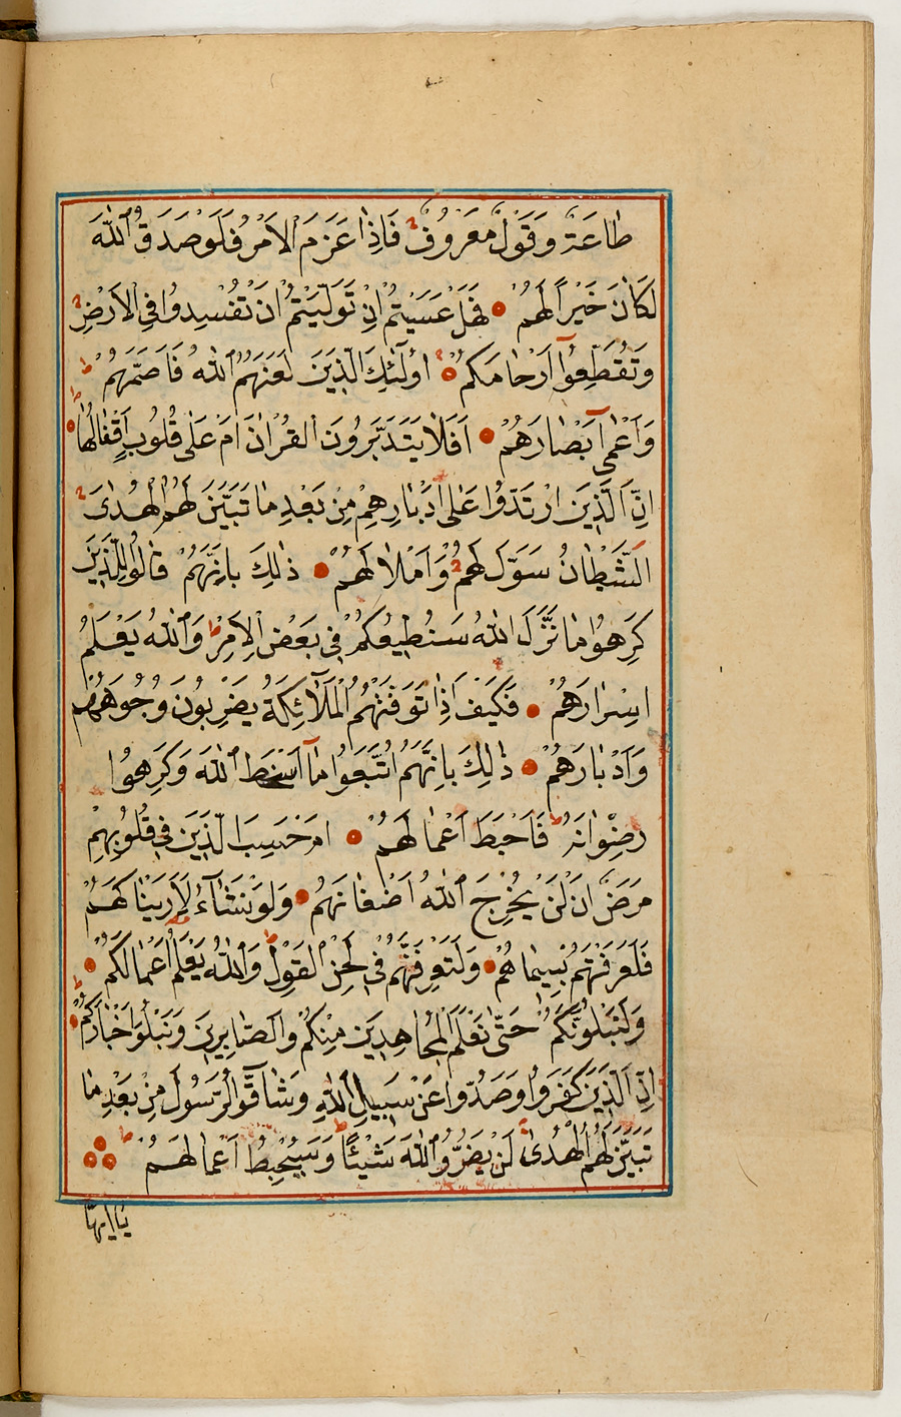 طَاعَةٌ وَقَوْلٌ مَعْرُوفٌ فَاِذَا عَزَمَ الْاَمْرُ فَلَوْ صَدَقُوا اللّٰهَ
لَكَانَ خَيْرًا لَهُمْ فَهَلْ عَسَيْتُمْ اِنْ تَوَلَّيْتُمْ اَنْ تُفْسِدُوا فِي الْاَرْضِ
وَتُقَطِّعُٓوا اَرْحَامَكُمْ اُولٰٓئِكَ الَّذِينَ لَعَنَهُمُ اللّٰهُ فَاَصَمَّهُمْ
وَاَعْمٰٓى اَبْصَارَهُمْ اَفَلَا يَتَدَبَّرُونَ الْقُرْاٰنَ اَمْ عَلٰى قُلُوبٍ اَقْفَالُهَا
اِنَّ الَّذِينَ ارْتَدُّوا عَلٰٓى اَدْبَارِهِمْ مِنْ بَعْدِ مَا تَبَيَّنَ لَهُمُ الْهُدَىۙ
الشَّيْطَانُ سَوَّلَ لَهُمْ وَاَمْلٰى لَهُمْ ذٰلِكَ بِاَنَّهُمْ قَالُوا لِلَّذِينَ
كَرِهُوا مَا نَزَّلَ اللّٰهُ سَنُطِيعُكُمْ فِي بَعْضِ الْاَمْرِ وَاللّٰهُ يَعْلَمُ
اِسْرَارَهُمْ فَكَيْفَ اِذَا تَوَفَّتْهُمُ الْمَلٰٓئِكَةُ يَضْرِبُونَ وُجُوهَهُمْ
وَاَدْبَارَهُمْ ذٰلِكَ بِاَنَّهُمُ اتَّبَعُوا مَٓا اَسْخَطَ اللّٰهَ وَكَرِهُوا
رِضْوَانَهُ فَاَحْبَطَ اَعْمَالَهُمْ اَمْ حَسِبَ الَّذِينَ فِي قُلُوبِهِمْ
مَرَضٌ اَنْ لَنْ يُخْرِجَ اللّٰهُ اَضْغَانَهُمْ وَلَوْ نَشَٓاءُ لَاَرَيْنَاكَهُمْ
فَلَعَرَفْتَهُمْ بِسِيمَاهُمْ وَلَتَعْرِفَنَّهُمْ فِي لَحْنِ الْقَوْلِ وَاللّٰهُ يَعْلَمُ اَعْمَالَكُمْ
وَلَنَبْلُوَنَّكُمْ حَتّٰى نَعْلَمَ الْمُجَاهِدِينَ مِنْكُمْ وَالصَّابِرِينَ وَنَبْلُوَ اَخْبَارَكُمْ
اِنَّ الَّذِينَ كَفَرُوا وَصَدُّوا عَنْ سَبِيلِ اللّٰهِ وَشَٓاقُّوا الرَّسُولَ مِنْ بَعْدِ مَا
تَبَيَّنَ لَهُمُ الْهُدٰى لَنْ يَضُرُّوا اللّٰهَ شَيْئًا وَسَيُحْبِطُ اَعْمَالَهُمْ
يَٓا اَيُّهَا